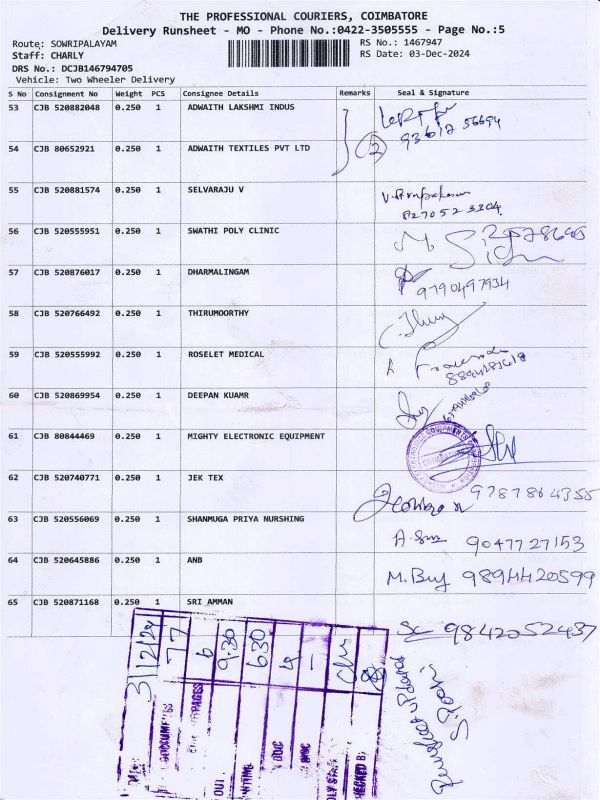 THE PROFESSIONAL COURIERS, COIMBATORE
Delivery Runsheet - MO - Phone No.:0422-3505555 - Page No.:5
Route: SOWRIPALAYAM RS No.: 1467947
Staff: CHARLY RS Date: 03-Dec-2024
DRS No.: DCJB146794705
Vehicle: Two Wheeler Delivery
S No Consignment No Weight PCS Consignee Details Remarks Seal & Signature
53 CJB 520882048 0.250 1 ADWAITH LAKSHMI INDUS
93617 56694
54 CJB 80652921 0.250 1 ADWAITH TEXTILES PVT LTD 2
55 CJB 520881574 0.250 1 SELVARAJU V
82705 23304
56 CJB 520555951 0.250 1 SWATHI POLY CLINIC
57 CJB 520876017 0.250 1 DHARMALINGAM
9790497934
58 CJB 520766492 0.250 1 THIRUMOORTHY
59 CJB 520555992 0.250 1 ROSELET MEDICAL
60 CJB 520869954 0.250 1 DEEPAN KUAMR
61 CJB 80844469 0.250 1 MIGHTY ELECTRONIC EQUIPMENT
COIMBATORE
62 CJB 520740771 0.250 1 JEK TEX
9787864355
63 CJB 520556069 0.250 1 SHANMUGA PRIYA NURSHING
9047727153
64 CJB 520645886 0.250 1 ANB
9894420599
65 CJB 520871168 0.250 1 SRI AMMAN
9842052437
3/12/24
77
6
9:30
6:30
4
OUT